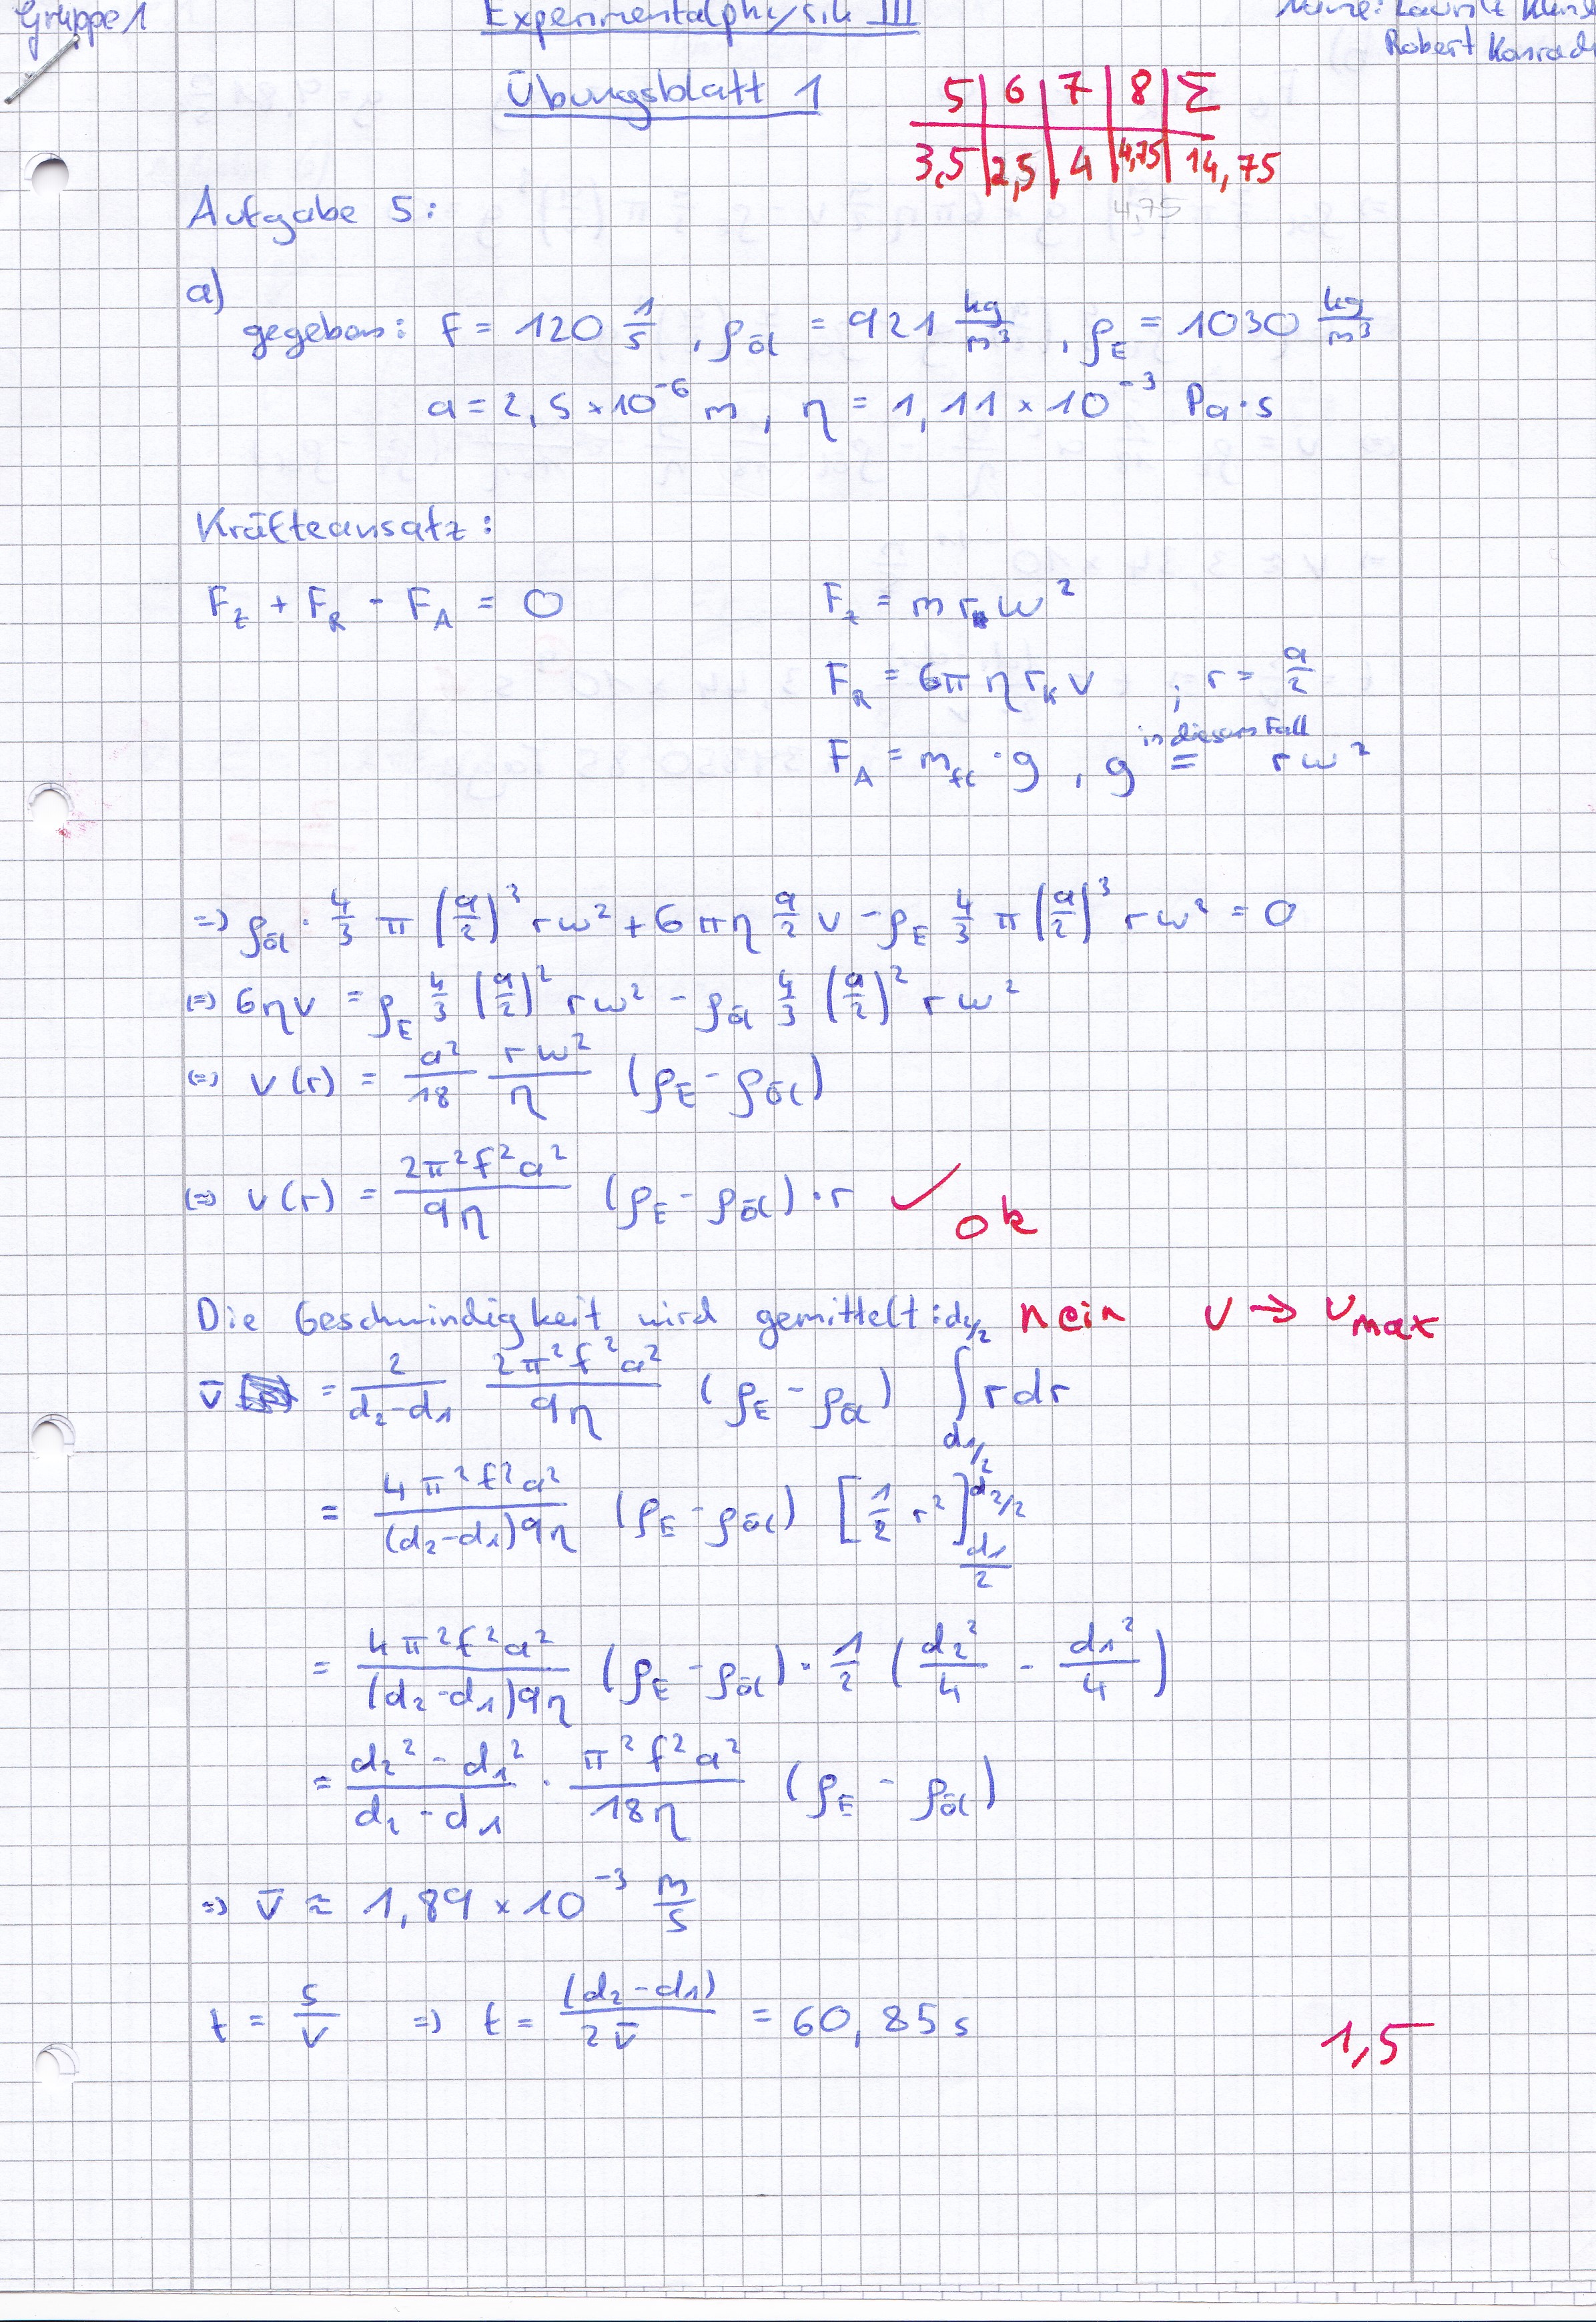 Gruppe 1
Experimentalphysik III
Robert Konrad
Übungsblatt 1
5 | 6 | 7 | 8 | Σ
3,5 | 2,5 | 4 | 4,75 | 14,75
4,75
Aufgabe 5:
a)
gegeben: f = 120 1/s , ρ_Öl = 921 kg/m³ , ρ_E = 1030 kg/m³
a = 2,5 × 10⁻⁶ m , η = 1,11 × 10⁻³ Pa·s
Kräfteansatz:
F_z + F_R - F_A = 0
F_z = m r ω²
F_R = 6π η r_K v ; r = a/2
F_A = m_fl · g , g = (in diesem Fall) r ω²
=> ρ_Öl · 4/3 π (a/2)³ r ω² + 6 π η a/2 v - ρ_E 4/3 π (a/2)³ r ω² = 0
<=> 6 η v = ρ_E 4/3 (a/2)² r ω² - ρ_Öl 4/3 (a/2)² r ω²
<=> v(r) = a²/18 r ω²/η (ρ_E - ρ_Öl)
<=> v(r) = 2π²f²a²/9η (ρ_E - ρ_Öl) · r ✓ ok
Die Geschwindigkeit wird gemittelt: nein v → v_max
v̄ = 2/(d₂-d₁) 2π²f²a²/9η (ρ_E - ρ_Öl) ∫_{d₁/2}^{d₂/2} r dr
= 4π²f²a²/((d₂-d₁)9η) (ρ_E - ρ_Öl) [1/2 r²]_{d₁/2}^{d₂/2}
= 4π²f²a²/((d₂-d₁)9η) (ρ_E - ρ_Öl) · 1/2 (d₂²/4 - d₁²/4)
= (d₂² - d₁²)/(d₂ - d₁) · π²f²a²/18η (ρ_E - ρ_Öl)
=> v̄ ≈ 1,89 × 10⁻³ m/s
t = s/v => t = (d₂-d₁)/2v̄ = 60,85 s
1,5